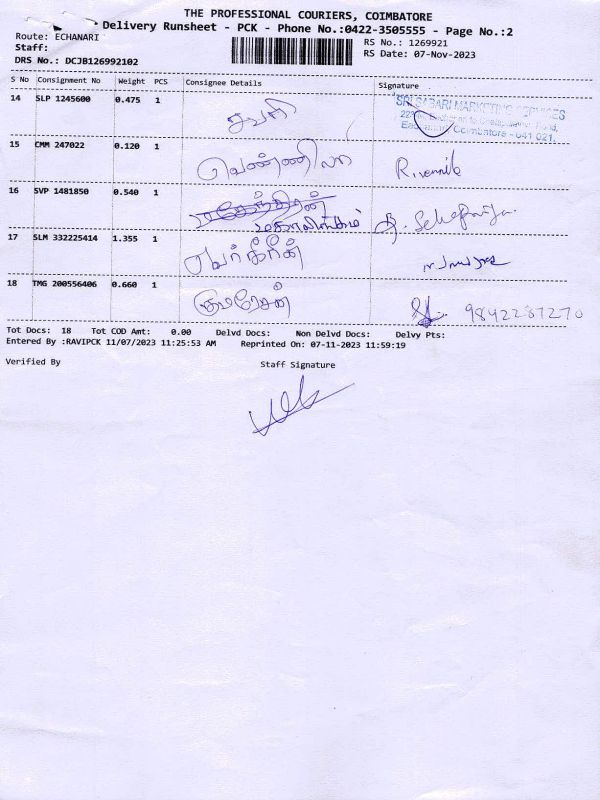 THE PROFESSIONAL COURIERS, COIMBATORE
Delivery Runsheet - PCK - Phone No.:0422-3505555 - Page No.:2
Route: ECHANARI
RS No.: 1269921
Staff:
RS Date: 07-Nov-2023
DRS No.: DCJB126992102
S No Consignment No Weight PCS Consignee Details Signature
14 SLP 1245600 0.475 1 சபரி
SRI SABARI MARKETING SERVICES
Coimbatore - 641 021.
15 CMM 247022 0.120 1 வெண்ணிலா R.vennila
16 SVP 1481850 0.540 1
மகாலிங்கம்
17 SLM 332225414 1.355 1
18 TMG 200556406 0.660 1 குமரேசன் 9842287270
Tot Docs: 18 Tot COD Amt: 0.00 Delvd Docs: Non Delvd Docs: Delvy Pts:
Entered By :RAVIPCK 11/07/2023 11:25:53 AM Reprinted On: 07-11-2023 11:59:19
Verified By Staff Signature